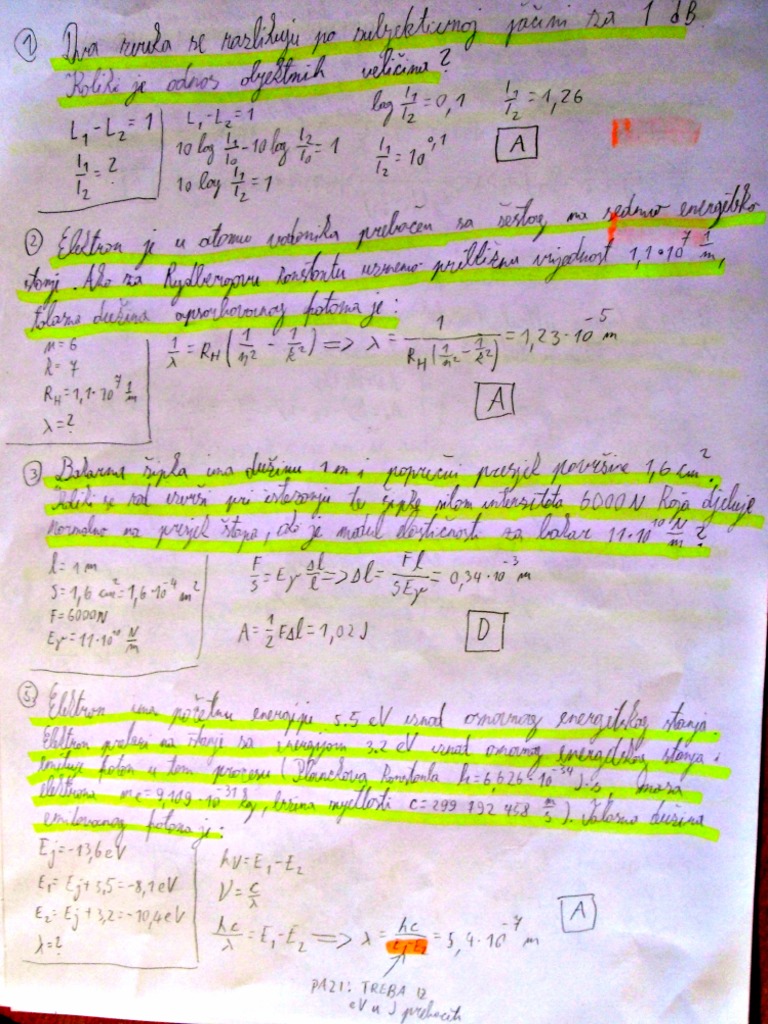 ① Dva zvuka se razlikuju po subjektivnoj jačini za 1 dB.
Koliki je odnos objektnih veličina?
L₁-L₂=1
I₁/I₂=?
L₁-L₂=1
10 log I₁/I₀ - 10 log I₂/I₀ = 1
10 log I₁/I₂ = 1
log I₁/I₂ = 0,1
I₁/I₂ = 10^0,1
I₁/I₂ = 1,26
A
② Elektron je u atomu vodonika prebačen sa šestog na sedmo energetsko
stanje. Ako za Rydbergovu konstantu uzmemo približnu vrijednost 1,1·10⁷ 1/m,
talasna dužina apsorbovanog fotona je:
n=6
k=7
R_H=1,1·10⁷ 1/m
λ=?
1/λ = R_H(1/n² - 1/k²) => λ = 1/(R_H(1/n² - 1/k²)) = 1,23·10⁻⁵ m
A
③ Bakarna šipka ima dužinu 1 m i poprečni presjek površine 1,6 cm².
Koliki se rad izvrši pri istezanju te šipke silom intenziteta 6000 N koja djeluje
normalno na presjek štapa, ako je modul elastičnosti za bakar 11·10¹⁰ N/m?
l=1 m
S=1,6 cm²=1,6·10⁻⁴ m²
F=6000N
Eγ=11·10¹⁰ N/m
F/S = Eγ Δl/l => Δl = Fl/SEγ = 0,34·10⁻³ m
A = 1/2 FΔl = 1,02 J
D
⑤ Elektron ima početnu energiju 5.5 eV iznad osnovnog energetskog stanja.
Elektron prelazi na stanje sa energijom 3.2 eV iznad osnovnog energetskog stanja i
emituje foton u tom procesu (Planckova konstanta h=6,626·10⁻³⁴ J·s, masa
elektrona me=9,109·10⁻³¹ kg, brzina svjetlosti c=299 792 458 m/s). Talasna dužina
emitovanog fotona je:
Ej=-13,6 eV
E₁=Ej+5,5=-8,1 eV
E₂=Ej+3,2=-10,4 eV
λ=?
hν=E₁-E₂
ν=c/λ
hc/λ = E₁-E₂ => λ = hc/(E₁-E₂) = 5,4·10⁻⁷ m
A
PAZI: TREBA iz
eV u J prebaciti